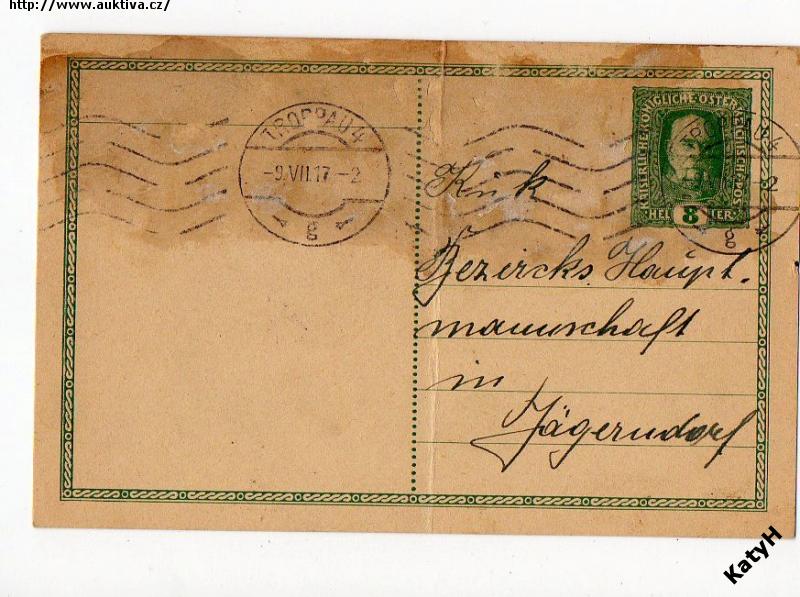 http://www.auktiva.cz/
TROPPAU 4
-9.VII.17-2
g
KAISERLICHE KÖNIGLICHE ÖSTERREICHISCHE POST
8
HELLER
K u k
Bezircks Haupt-
mannschaft
in
Jägerndorf
KatyH